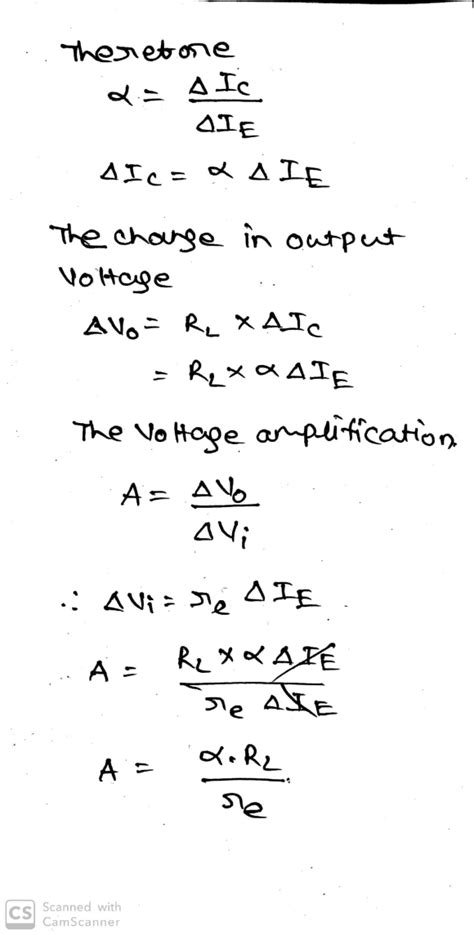 Therefore
α = ΔIC / ΔIE
ΔIC = α ΔIE
The change in output
Voltage
ΔVo = RL × ΔIC
= RL × α ΔIE
The Voltage amplification
A = ΔVo / ΔVi
∴ ΔVi = re ΔIE
A = RL × α ΔIE / re ΔIE
A = α. RL / re
CS Scanned with
CamScanner